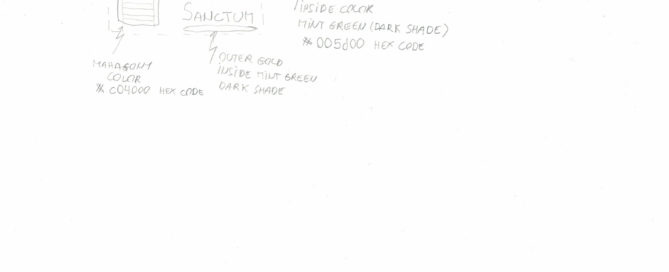 SANCTUM
INSIDE COLOR
MINT GREEN (DARK SHADE)
※ 005d00 HEX CODE
MAHAGONY
COLOR
※ c04000 HEX CODE
OUTER GOLD
INSIDE MINT GREEN
DARK SHADE